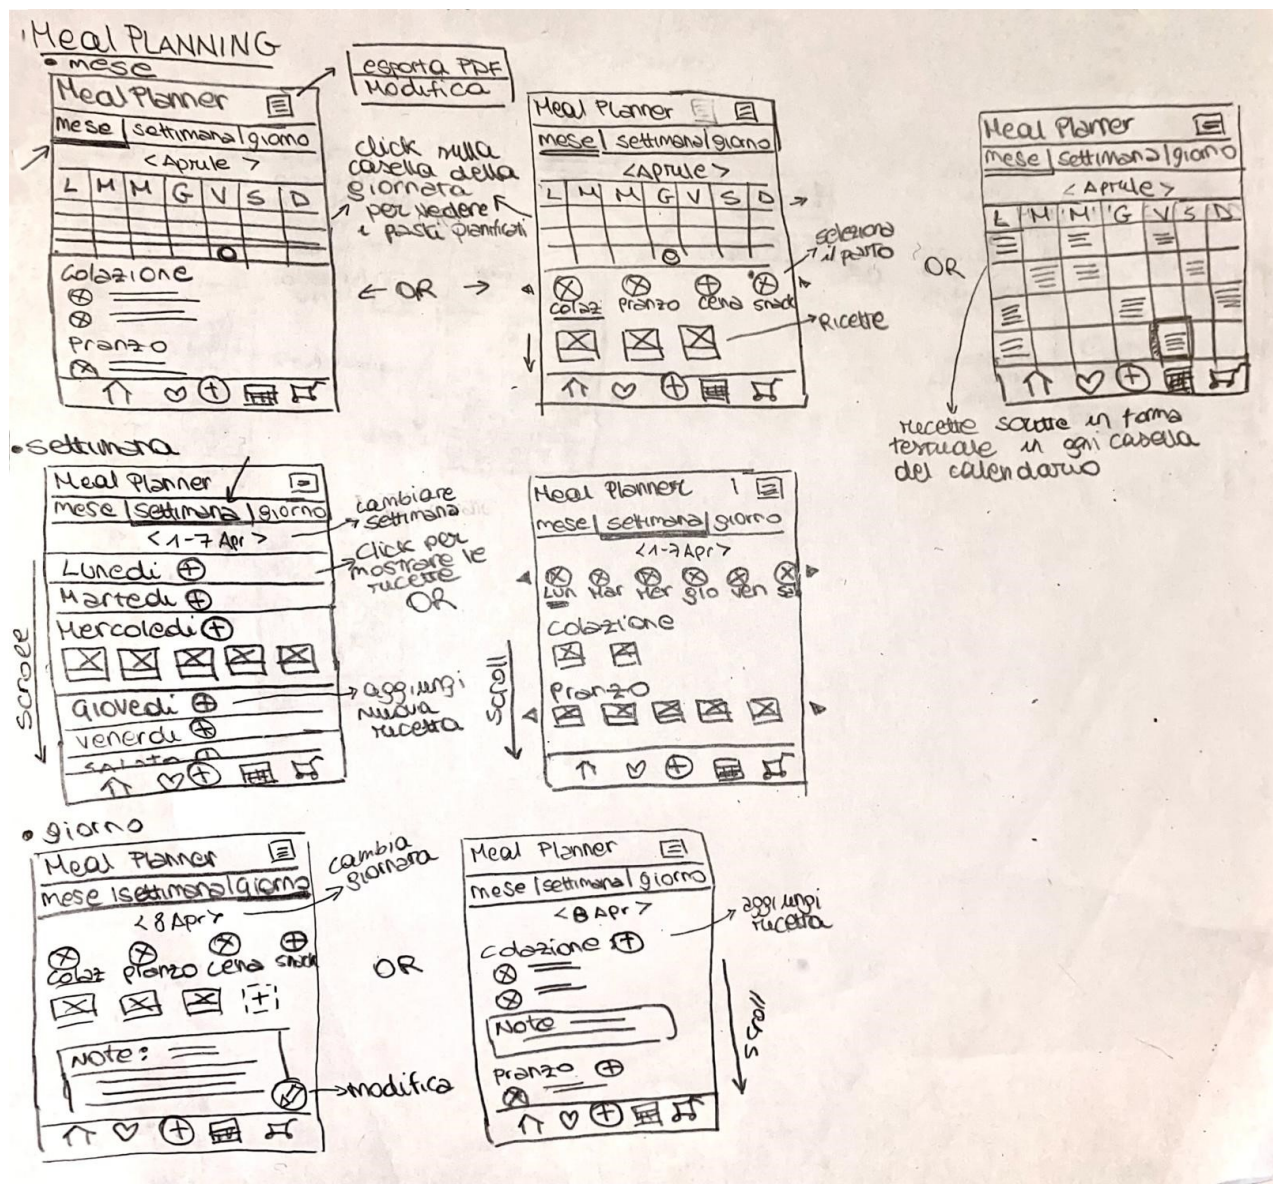 Meal PLANNING
• mese
Meal Planner
mese | settimana | giorno
< Aprile >
L M M G V S D
Colazione
Pranzo
esporta PDF
Modifica
click sulla
casella della
giornata
per vedere
i pasti pianificati
← OR →
Meal Planner
mese | settimana | giorno
< Aprile >
L M M G V S D
Colaz Pranzo Cena snack
seleziona
il pasto
Ricette
OR
Meal Planner
mese | settimana | giorno
< Aprile >
L M M G V S D
ricette scritte in forma
testuale in ogni casella
del calendario
• settimana
Meal Planner
mese | settimana | giorno
< 1-7 Apr >
Lunedì +
Martedì +
Mercoledì +
Giovedì +
venerdì +
Scroll
cambiare
settimana
Click per
mostrare le
ricette
OR
aggiungi
nuova
ricetta
Meal Planner
mese | settimana | giorno
< 1-7 Apr >
Lun Mar Mer gio Ven
Colazione
Pranzo
Scroll
• giorno
Meal Planner
mese | settimana | giorno
< 8 Apr >
Colaz pranzo cena snack
+
Note:
cambia
giornata
modifica
OR
Meal Planner
mese | settimana | giorno
< 8 Apr >
Colazione +
Note
pranzo +
aggiungi
ricetta
Scroll